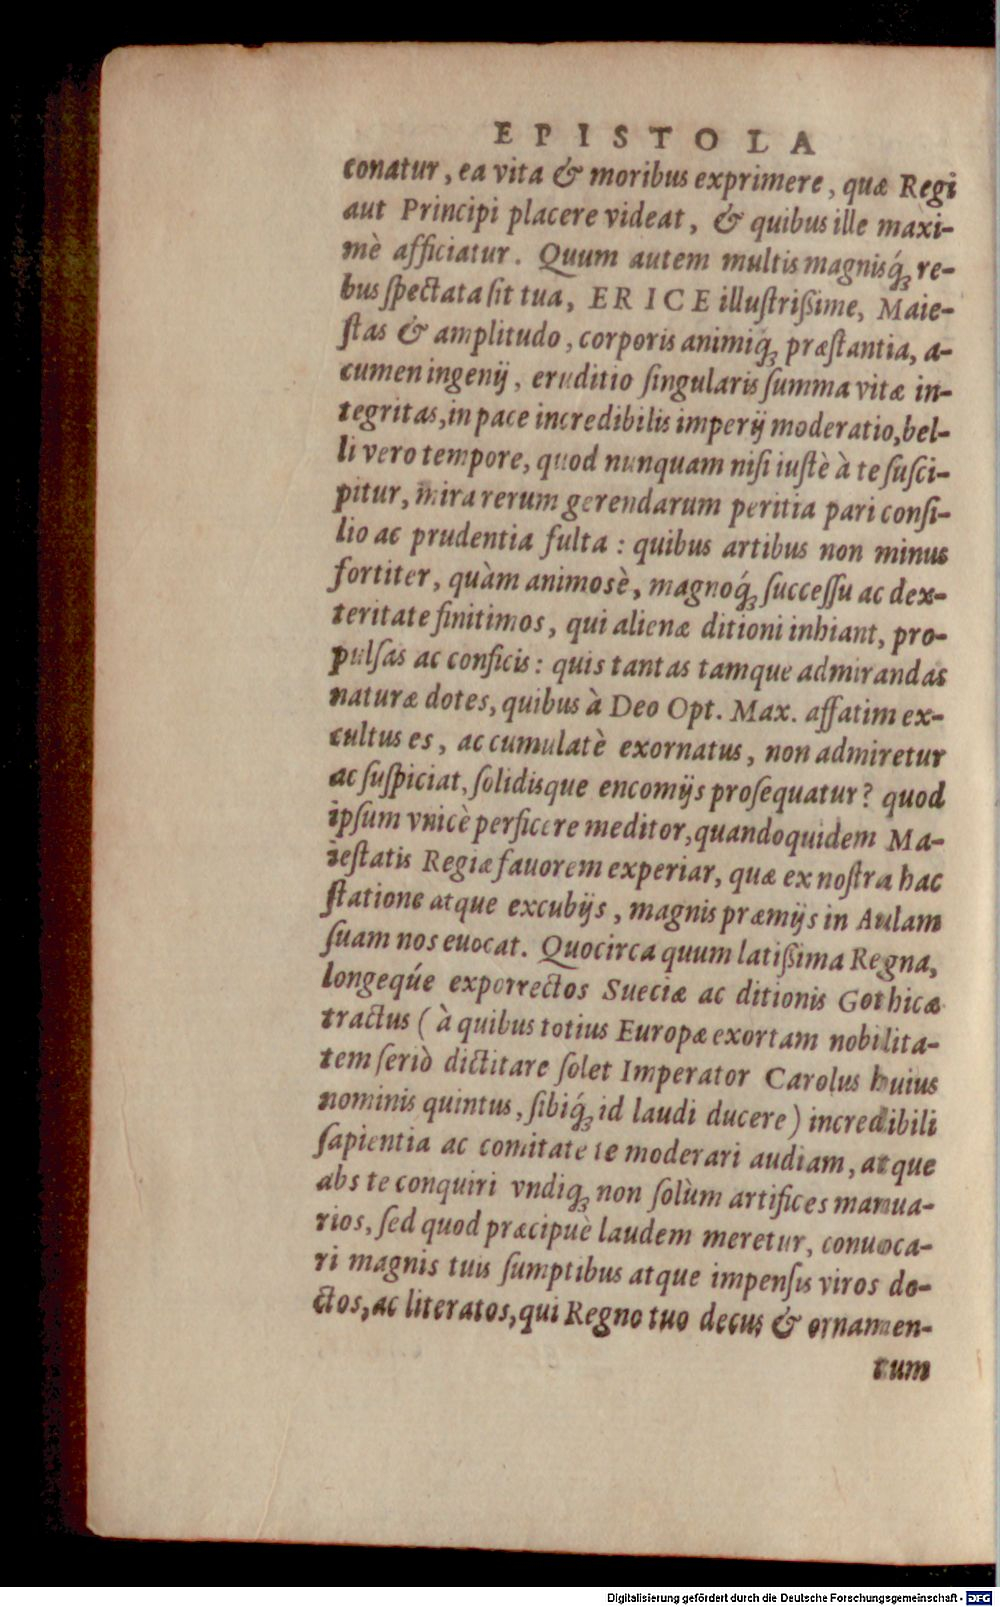 EPISTOLA
conatur, ea vita & moribus exprimere, quæ Regi
aut Principi placere videat, & quibus ille maxi-
mè afficiatur. Quum autem multis magnisq́ꝫ re-
bus ſpectata ſit tua, ERICE illuſtriſſime, Maie-
ſtas & amplitudo, corporis animiq́ꝫ præſtantia, a-
cumen ingenij, eruditio ſingularis ſumma vitæ in-
tegritas, in pace incredibilis imperij moderatio, bel-
li vero tempore, quod nunquam niſi iuſtè à te ſuſci-
pitur, mira rerum gerendarum peritia pari conſi-
lio ac prudentia fulta : quibus artibus non minus
fortiter, quàm animosè, magnoq́ꝫ ſucceſſu ac dex-
teritate finitimos, qui alienæ ditioni inhiant, pro-
pulſas ac conficis : quis tantas tamque admirandas
naturæ dotes, quibus à Deo Opt. Max. affatim ex-
cultus es, ac cumulatè exornatus, non admiretur
ac ſuſpiciat, ſolidisque encomijs proſequatur? quod
ipſum vnicè perficere meditor, quandoquidem Ma-
ieſtatis Regiæ fauorem experiar, quæ ex noſtra hac
ſtatione atque excubijs, magnis præmijs in Aulam
ſuam nos euocat. Quocirca quum latiſſima Regna,
longeqúe exporrectos Sueciæ ac ditionis Gothicæ
tractus ( à quibus totius Europæ exortam nobilita-
tem ſeriò dictitare ſolet Imperator Carolus huius
nominis quintus, ſibiq́ꝫ id laudi ducere ) incredibili
ſapientia ac comitate te moderari audiam, atque
abs te conquiri vndiqꝫ non ſolùm artifices manua-
rios, ſed quod præcipuè laudem meretur, conuoca-
ri magnis tuis ſumptibus atque impenſis viros do-
ctos, ac literatos, qui Regno tuo decus & ornamen-
tum
Digitalisierung gefördert durch die Deutsche Forschungsgemeinschaft - DFG